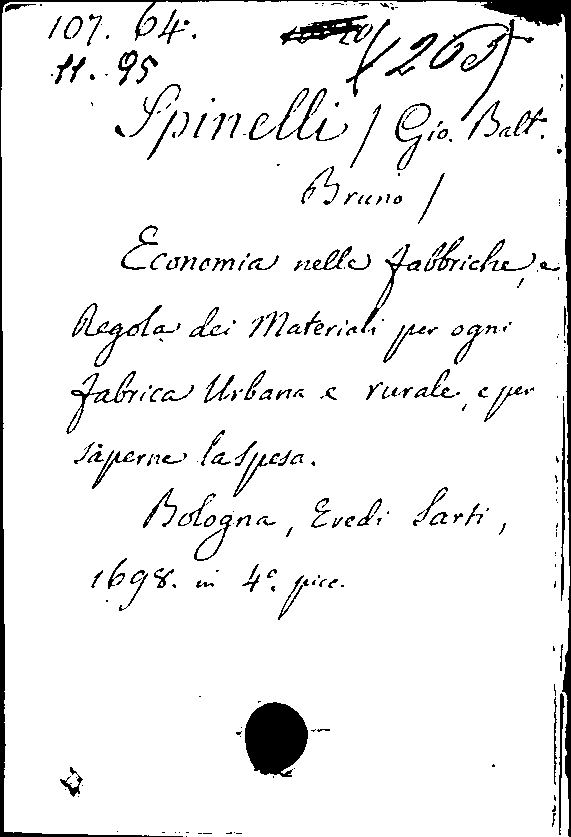 107. 64.
(265)
11. 95
Spinelli / Gio. Batt.
Bruno /
Economia nelle fabbriche, e
Regola dei Materiali per ogni
fabrica Urbana e rurale, e per
saperne la spesa.
Bologna, Eredi Sarti,
1698. in 4º. picc.